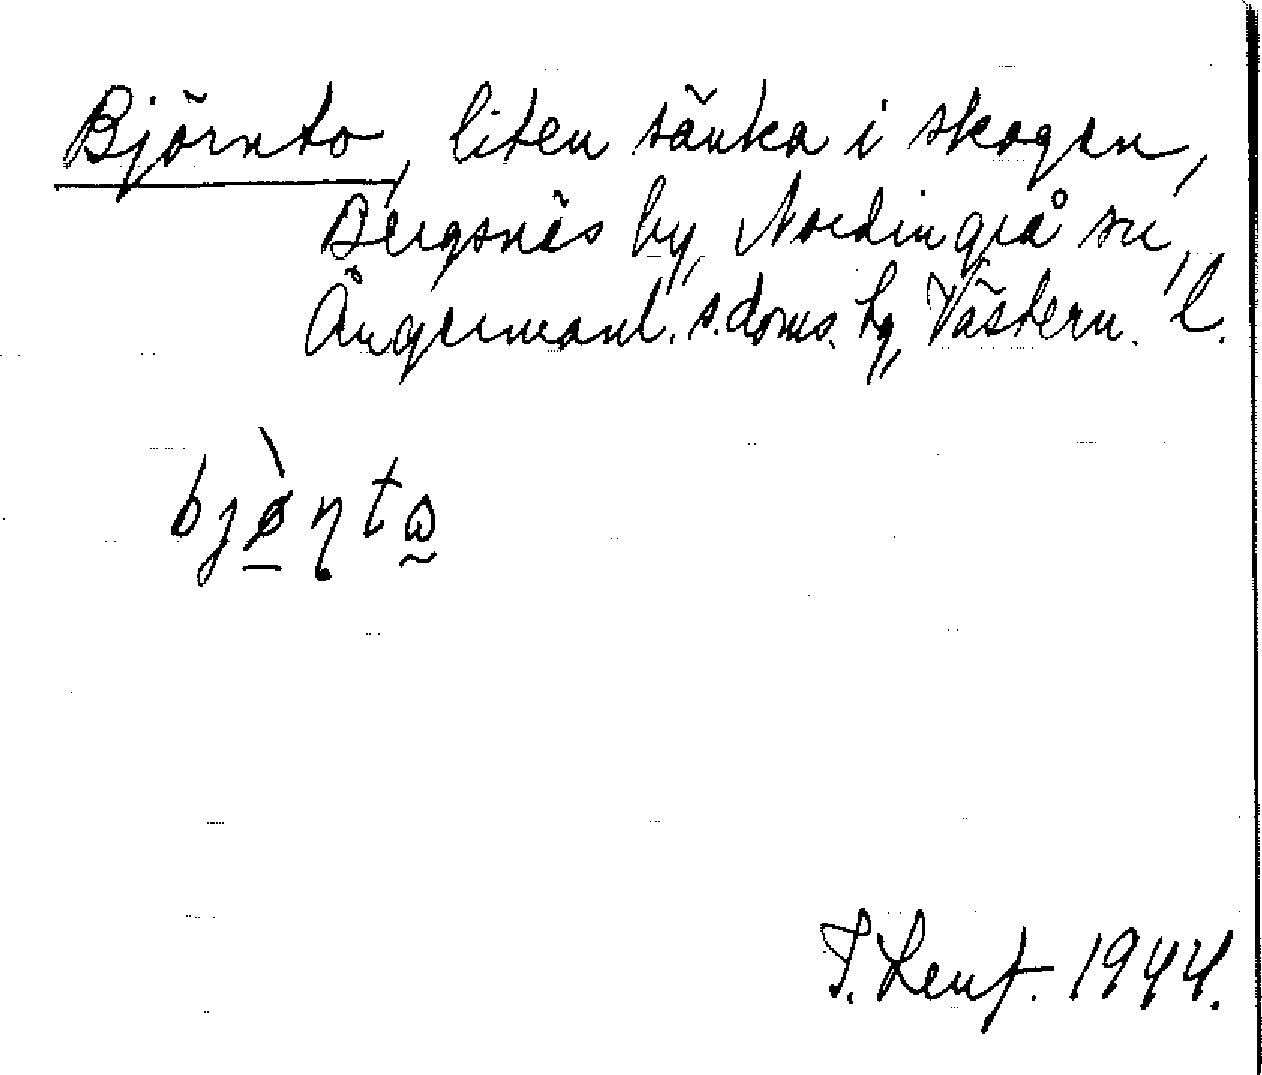 Björnto, liten sänka i skogen,
Bergsnäs by, Nordingrå sn,
Ångermanl. s. doms. hg, Västern. l.
bjø̀ṇto
T. Leuf. 1944.